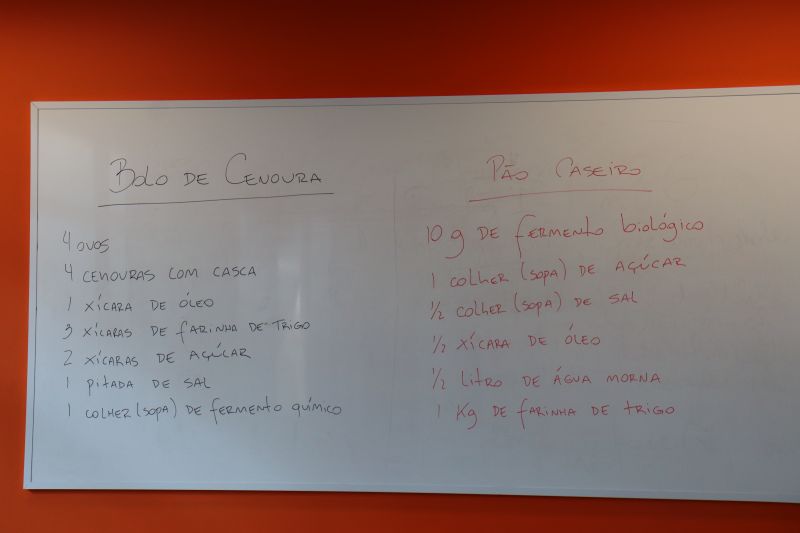 BOLO DE CENOURA
4 OVOS
4 CENOURAS COM CASCA
1 XÍCARA DE ÓLEO
3 XÍCARAS DE FARINHA DE TRIGO
2 XÍCARAS DE AÇÚCAR
1 PITADA DE SAL
1 COLHER (SOPA) DE FERMENTO QUÍMICO
PÃO CASEIRO
10 g DE FERMENTO biológico
1 COLHER (SOPA) DE AÇÚCAR
1/2 COLHER (SOPA) DE SAL
1/2 XÍCARA DE ÓLEO
1/2 LITRO DE ÁGUA MORNA
1 Kg DE FARINHA DE TRIGO